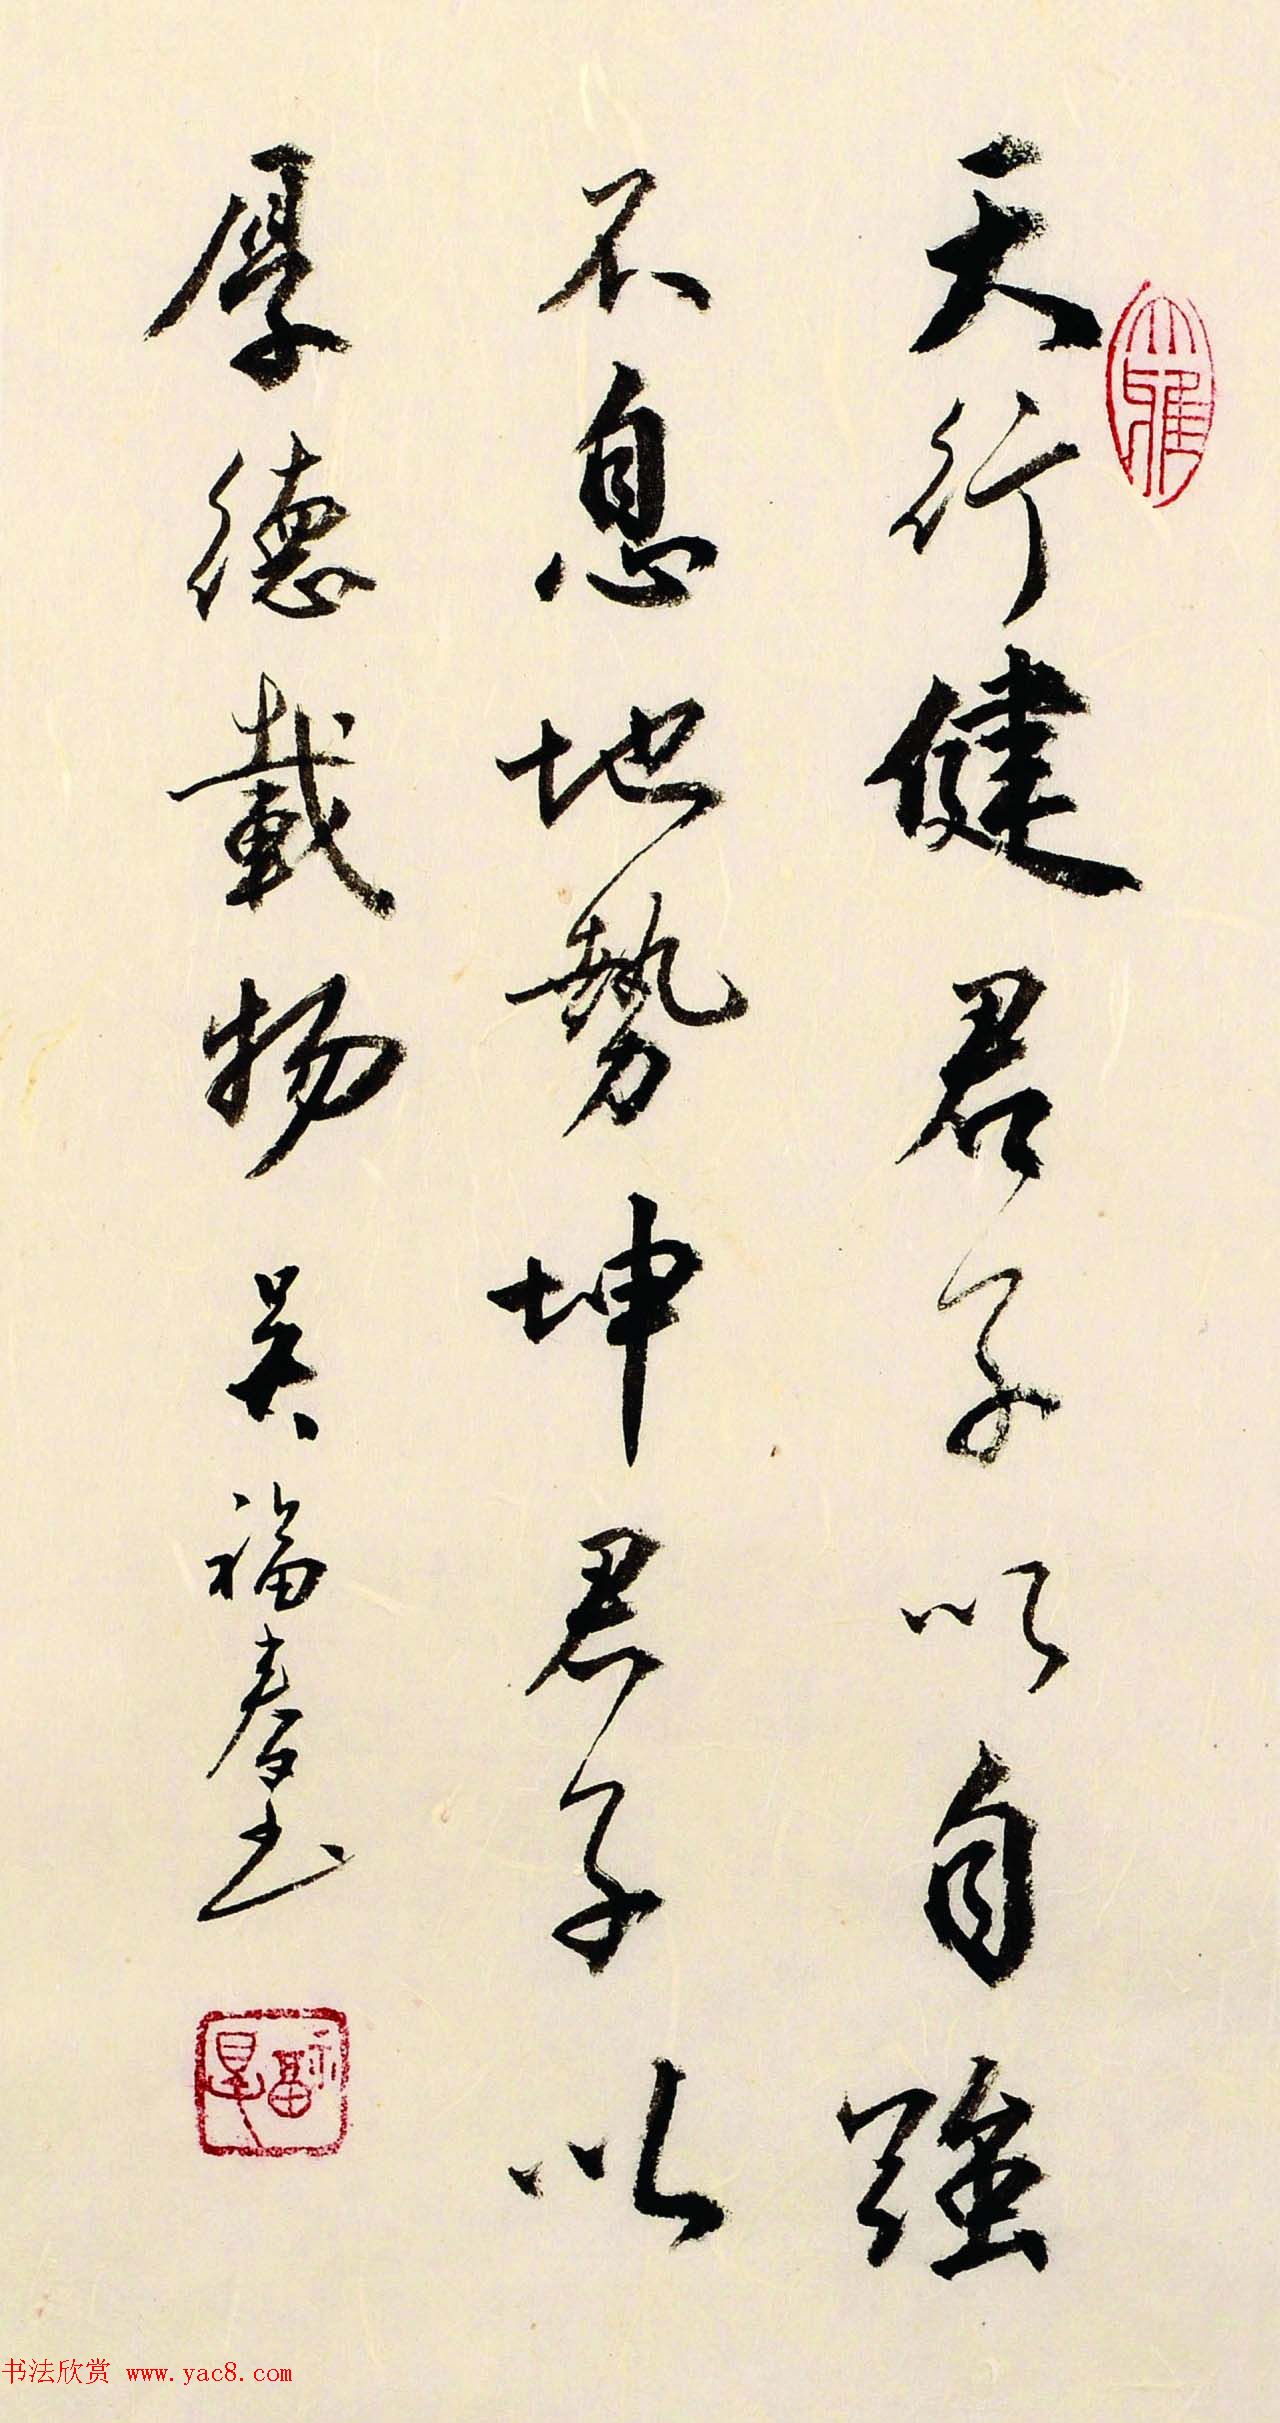 天行健君子以自強
不息地勢坤君子以
厚德載物 吴福春书
书法欣赏 www.yac8.com